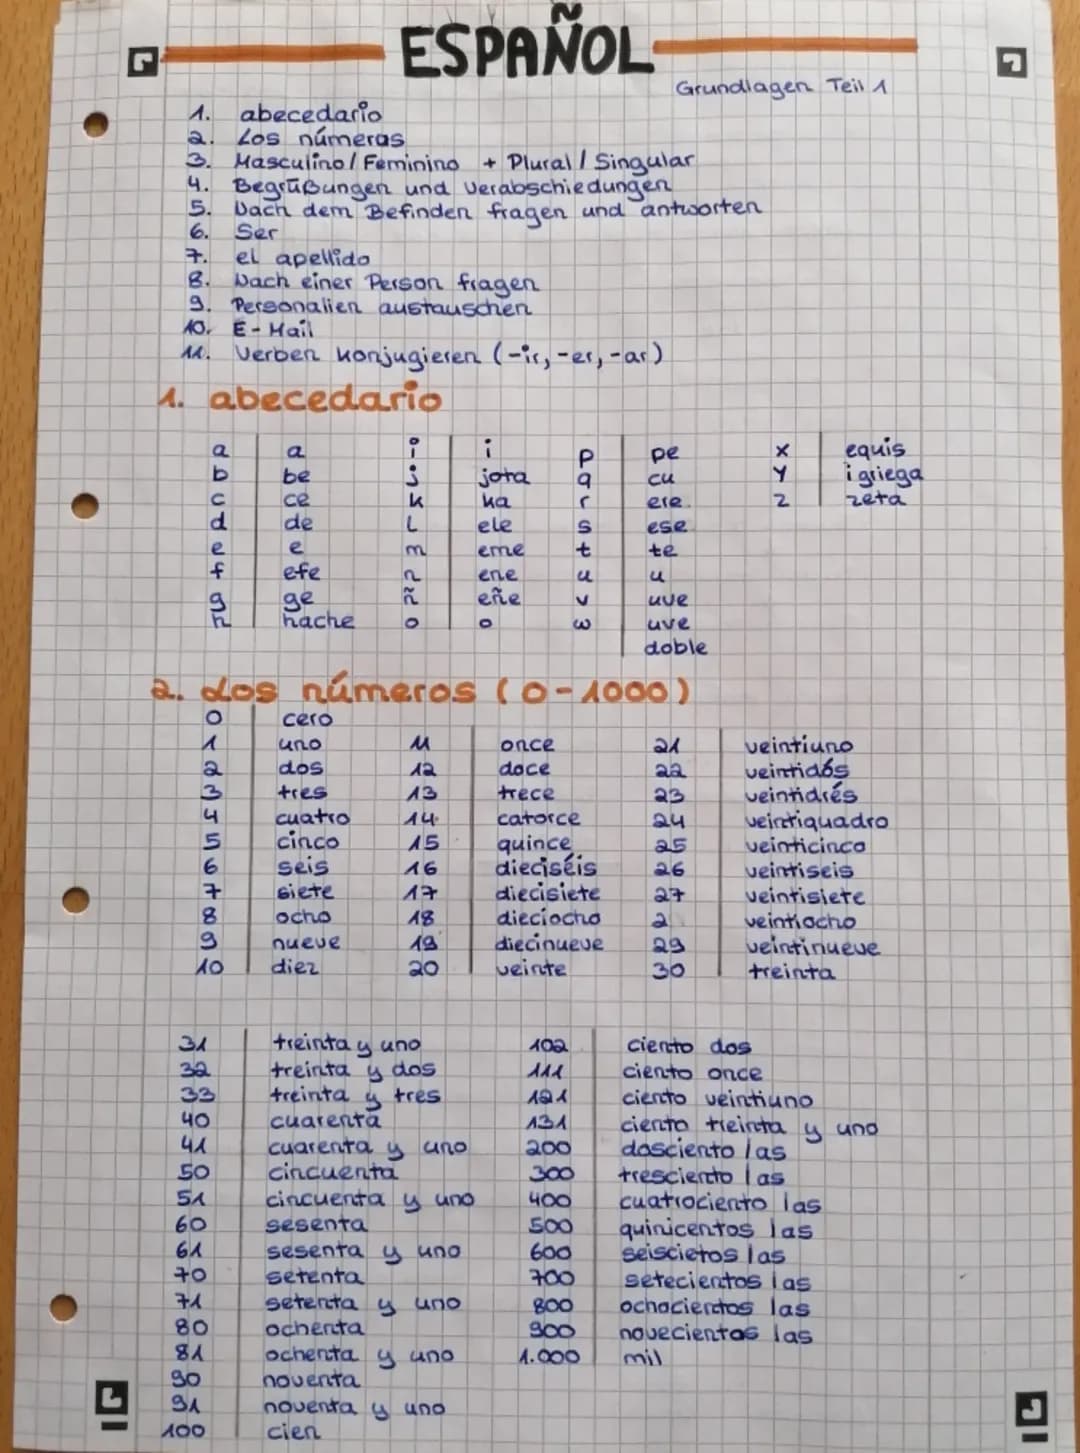 ESPAÑOL
Grundlagen Teil 1
1. abecedario
2. Los números
3. Masculino/Feminino + Plural/Singular
4. Begrüßungen und Verabschiedungen
5. Nach dem Befinden fragen und antworten
6. Ser
7. el apellido
8. Nach einer Person fragen
9. Personalien austauschen
10. E-Mail
11. Verben konjugieren (-ir, -er, -ar)
1. abecedario
a a i i p pe x equis
b be j jota q cu y i griega
c ce k ka r ere z zeta
d de l ele s ese
e e m eme t te
f efe n ene u u
g ge ñ eñe v uve
h hache o o w uve
doble
2. Los números (0-1000)
0 cero
1 uno 11 once 21 veintiuno
2 dos 12 doce 22 veintidós
3 tres 13 trece 23 veintidrés
4 cuatro 14 catorce 24 veintiquadro
5 cinco 15 quince 25 veinticinco
6 seis 16 dieciséis 26 veintiseis
7 siete 17 diecisiete 27 veintisiete
8 ocho 18 dieciocho 2 veintiocho
9 nueve 19 diecinueve 29 veintinueve
10 diez 20 veinte 30 treinta
31 treinta y uno 102 ciento dos
32 treinta y dos 111 ciento once
33 treinta y tres 121 ciento veintiuno
40 cuarenta 131 ciento treinta y uno
41 cuarenta y uno 200 dosciento/as
50 cincuenta 300 tresciento/as
51 cincuenta y uno 400 cuatrociento/as
60 sesenta 500 quinicentos/as
61 sesenta y uno 600 seiscietos/as
70 setenta 700 setecientos/as
71 setenta y uno 800 ochocientos/as
80 ochenta 900 novecientos/as
81 ochenta y uno 1.000 mil
90 noventa
91 noventa y uno
100 cien